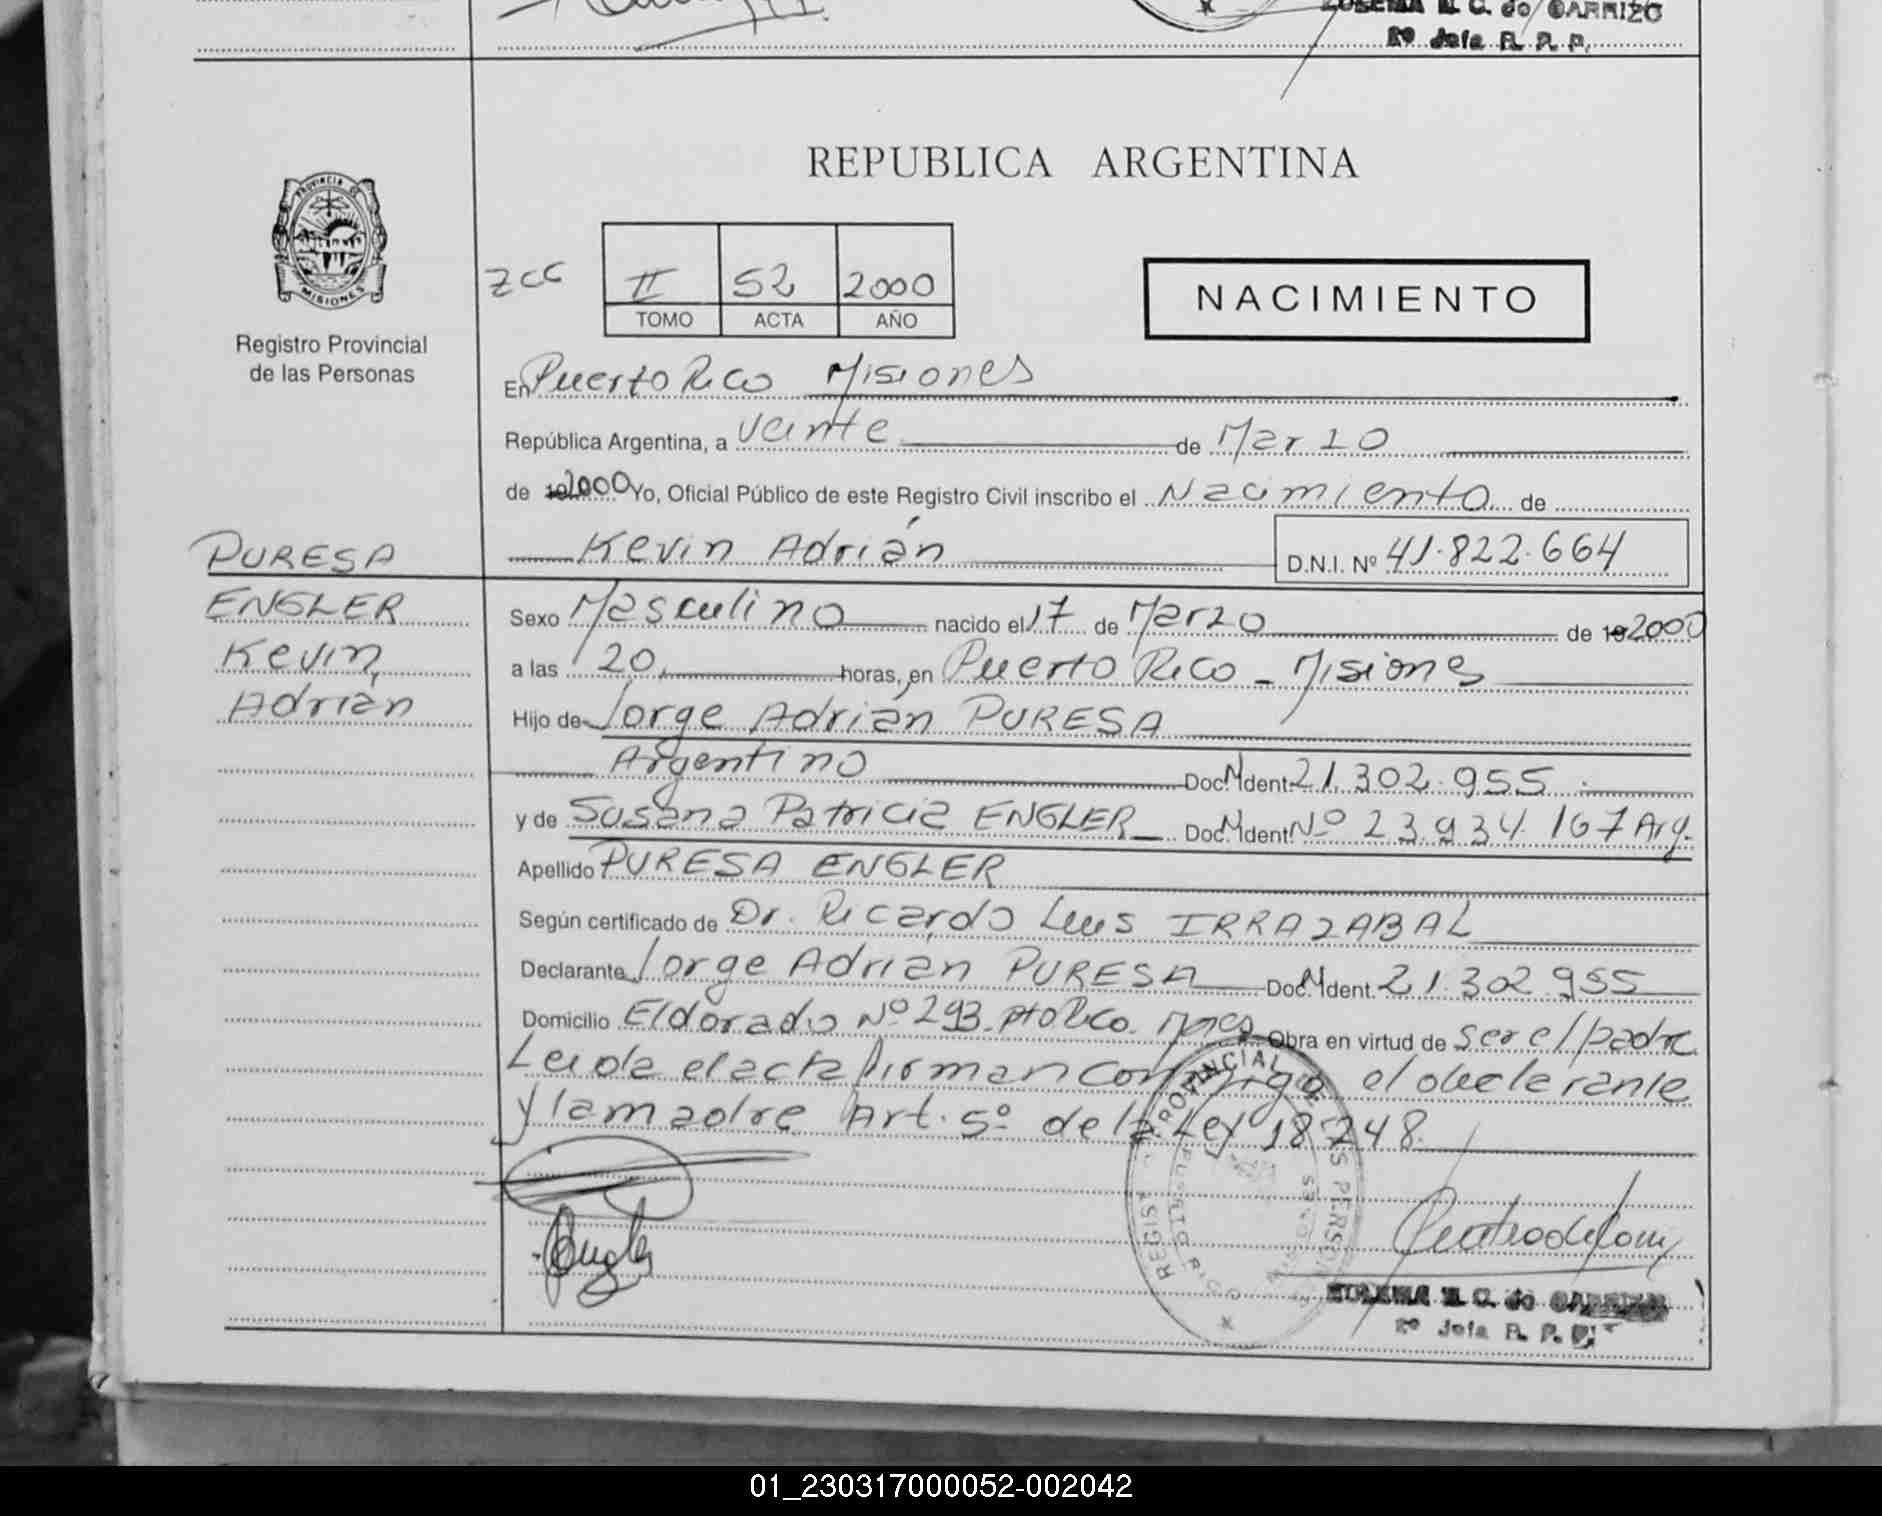 ZULEMA M. C. de CARRIZO
2º Jefa R. P. P.
REPUBLICA ARGENTINA
PROVINCIA DE
MISIONES
Registro Provincial
de las Personas
zcc
II 52 2000
TOMO ACTA AÑO
NACIMIENTO
En Puerto Rico Misiones
República Argentina, a veinte de Marzo
de 2000 Yo, Oficial Público de este Registro Civil inscribo el Nacimiento de
Kevin Adrián D.N.I. Nº 41.822.664
PURESA
ENGLER
Kevin
Adrián
Sexo Masculino nacido el 17 de Marzo de 19 2000
a las 20, horas, en Puerto Rico - Misiones
Hijo de Jorge Adrián PURESA
Argentino Doc. N Ident. 21.302.955
y de Susana Patricia ENGLER Doc. N Ident. Nº 23.934.167 Arg.
Apellido PURESA ENGLER
Según certificado de Dr. Ricardo Luis IRRAZABAL
Declarante Jorge Adrián PURESA Doc. N Ident. 21.302.955
Domicilio Eldorado Nº 293. Pto Rico. Mnes Obra en virtud de ser el padre
Leida el acta firman conmigo el declarante
y la madre Art. 5º de la Ley 18.248.
REGISTRO PROVINCIAL DE LAS PERSONAS
MISIONES
ZULEMA M. C. de CARRIZO
2º Jefa R. P. P.
01_230317000052-002042